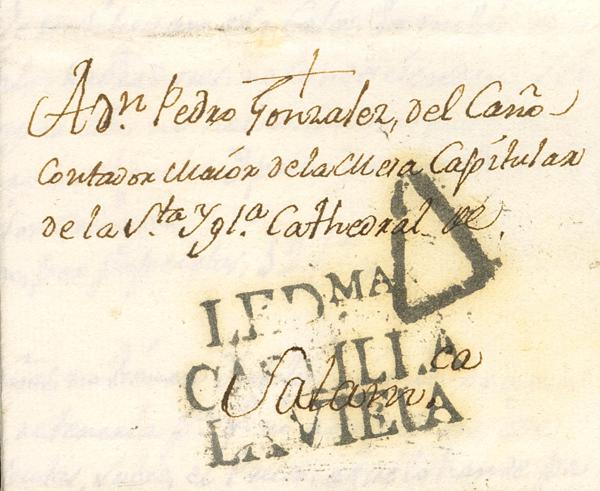 A Dn. Pedro Gonzalez, del Caño
Contador Maior de la Mesa Capitular
de la Sta. Ygla. Cathedral de.
LEDMA
CASVILLA
LAVIEIA
Salamca